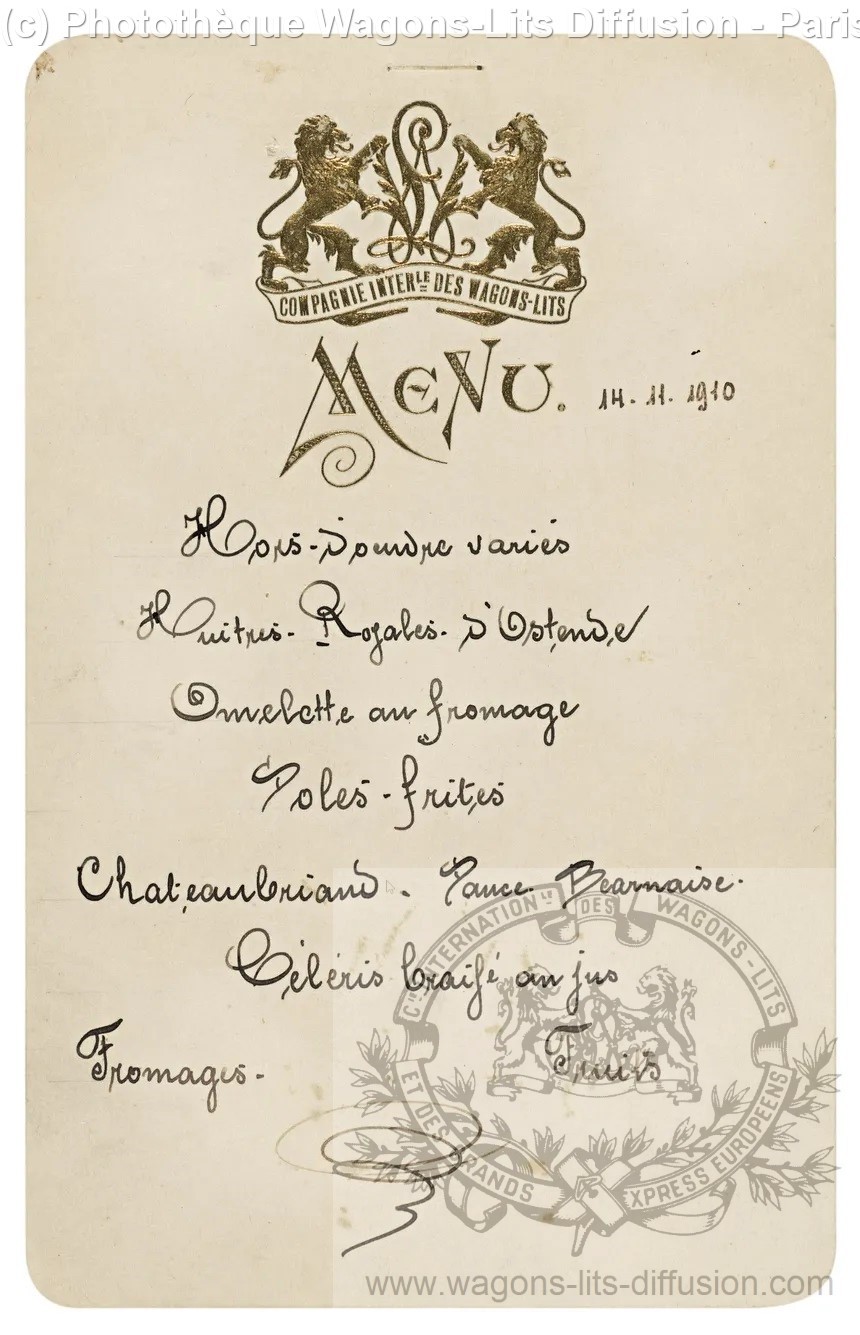 (c) Photothèque Wagons-Lits Diffusion - Paris
COMPAGNIE INTERLE DES WAGONS-LITS
MENU. 14.11.1910
Hors-d'oeudre variés
Huitres-Royales-d'Ostende
Omelette au fromage
Soles-frites
Chateaubriand - Sauce Bearnaise.
Céléris braisé au jus
Fromages- Fruits
CIE INTERNATIONLE DES WAGONS-LITS
ET DES GRANDS EXPRESS EUROPÉENS
www.wagons-lits-diffusion.com